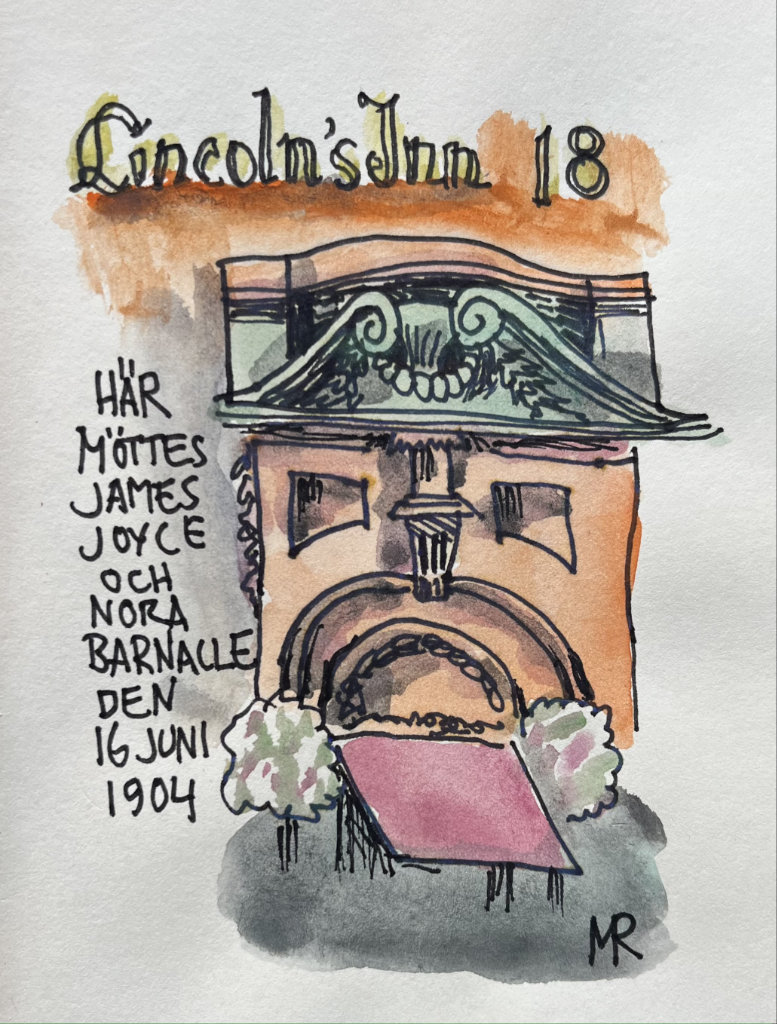 Lincoln's Inn 18
HÄR
MÖTTES
JAMES
JOYCE
OCH
NORA
BARNACLE
DEN
16 JUNI
1904
MR